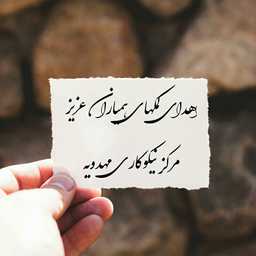 اهدای کمکهای همیاران عزیز
مرکز نیکوکاری مهدویه